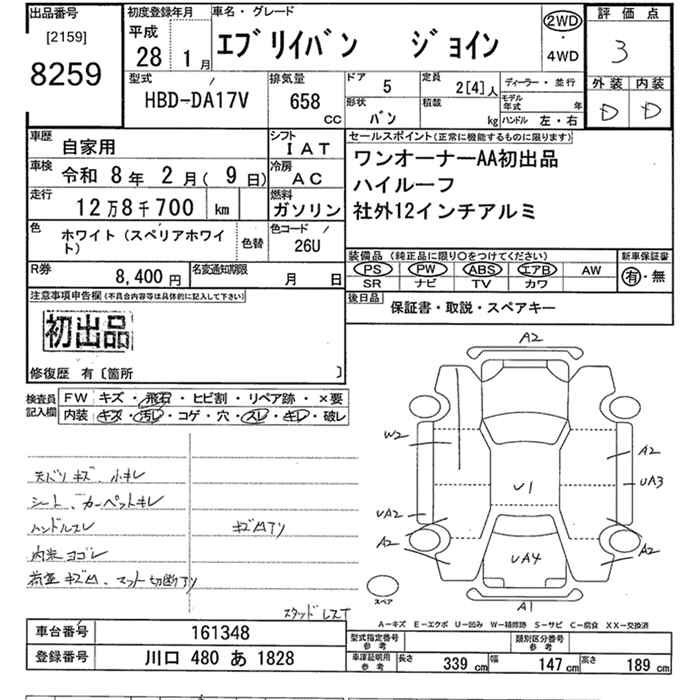 出品番号
[2159]
8259
初度登録年月
平成
28 1月
車名・グレード
エブリイバン ジョイン
2WD
・
4WD
評価点
3
外装 内装
D D
型式
HBD-DA17V
排気量
658
CC
ドア 5
形状 バン
定員 2[4]人
積載 kg
ディーラー・並行
モデル年式 年
ハンドル 左・右
車歴 自家用
シフト IAT
車検 令和 8年 2月( 9日)
冷房 AC
走行 12万8千700 km
燃料 ガソリン
色 ホワイト(スペリアホワイト)
色替
色コード 26U
R券 8,400円
名変通知期限 月 日
セールスポイント(正常に機能するものに限ります)
ワンオーナーAA初出品
ハイルーフ
社外12インチアルミ
装備品(純正品に限り○をつけてください)
PS PW ABS エアB AW
SR ナビ TV カワ
新車保証書
有・無
後日品 保証書・取説・スペアキー
注意事項申告欄(不具合内容等は具体的に記入して下さい)
初出品
修復歴 有〔箇所 〕
検査員記入欄
FW キズ・飛石・ヒビ割・リペア跡・×要
内装 キズ・汚レ・コゲ・穴・スレ・キレ・破レ
天バリキズ、小キレ
シート、カーペットキレ
ハンドルスレ
キズムアリ
内装ヨゴレ
マット切断アリ
スタッドレスT
A2
W2
A2
U1
UA3
UA2
A2
A2
UA4
A1
スペア
A-キズ E-エクボ U-凹み W-補修跡 S-サビ C-腐食 XX-交換済
車台番号 161348
登録番号 川口 480 あ 1828
型式指定番号参考
類別区分番号参考
車庫証明用参考
長さ 339 cm 幅 147 cm 高さ 189 cm